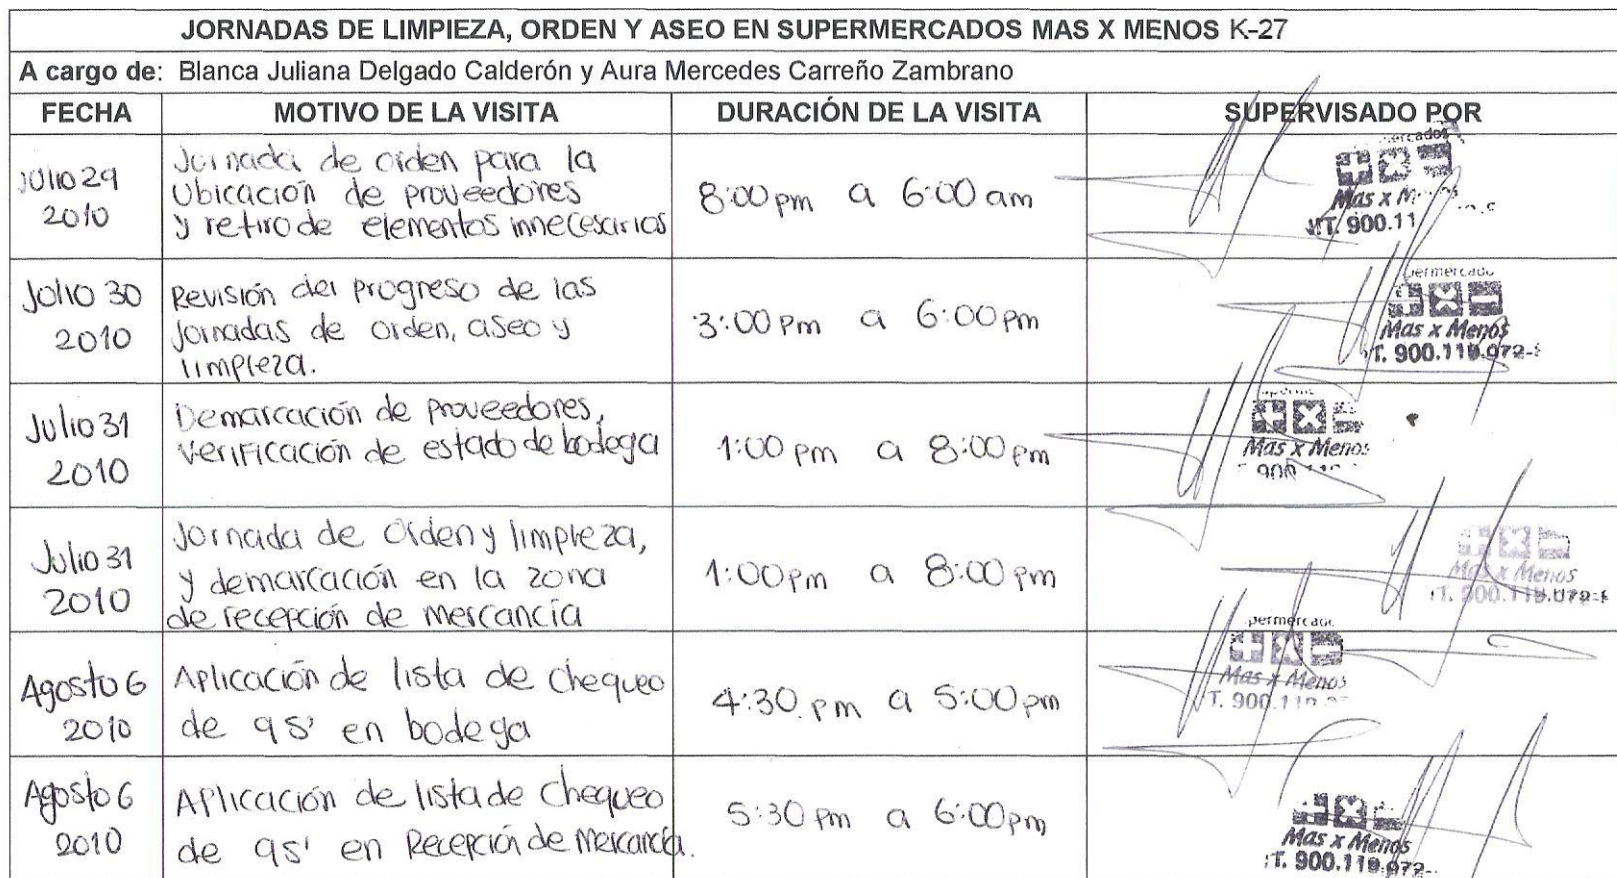 JORNADAS DE LIMPIEZA, ORDEN Y ASEO EN SUPERMERCADOS MAS X MENOS K-27
A cargo de: Blanca Juliana Delgado Calderón y Aura Mercedes Carreño Zambrano
FECHA MOTIVO DE LA VISITA DURACIÓN DE LA VISITA SUPERVISADO POR
Julio 29
2010
Jornada de orden para la
Ubicación de proveedores
y retiro de elementos innecesarios
8:00 pm a 6:00 am
Mas x
900.11
Julio 30
2010
Revisión del progreso de las
jornadas de orden, aseo y
limpieza.
3:00 pm a 6:00 pm
Mas x Menos
T. 900.119.072-
Julio 31
2010
Demarcación de proveedores,
Verificación de estado de bodega
1:00 pm a 8:00 pm
Mas x Menos
Julio 31
2010
Jornada de orden y limpieza,
y demarcación en la zona
de recepción de mercancía
1:00 pm a 8:00 pm
Mas x Menos
T. 900.119.072-
Agosto 6
2010
Aplicación de lista de chequeo
de 9s' en bodega
4:30 pm a 5:00 pm
Mas x Menos
T. 900.119
Agosto 6
2010
Aplicación de lista de chequeo
de 9s' en Recepción de Mercancía.
5:30 pm a 6:00 pm
Mas x Menos
T. 900.119.072-